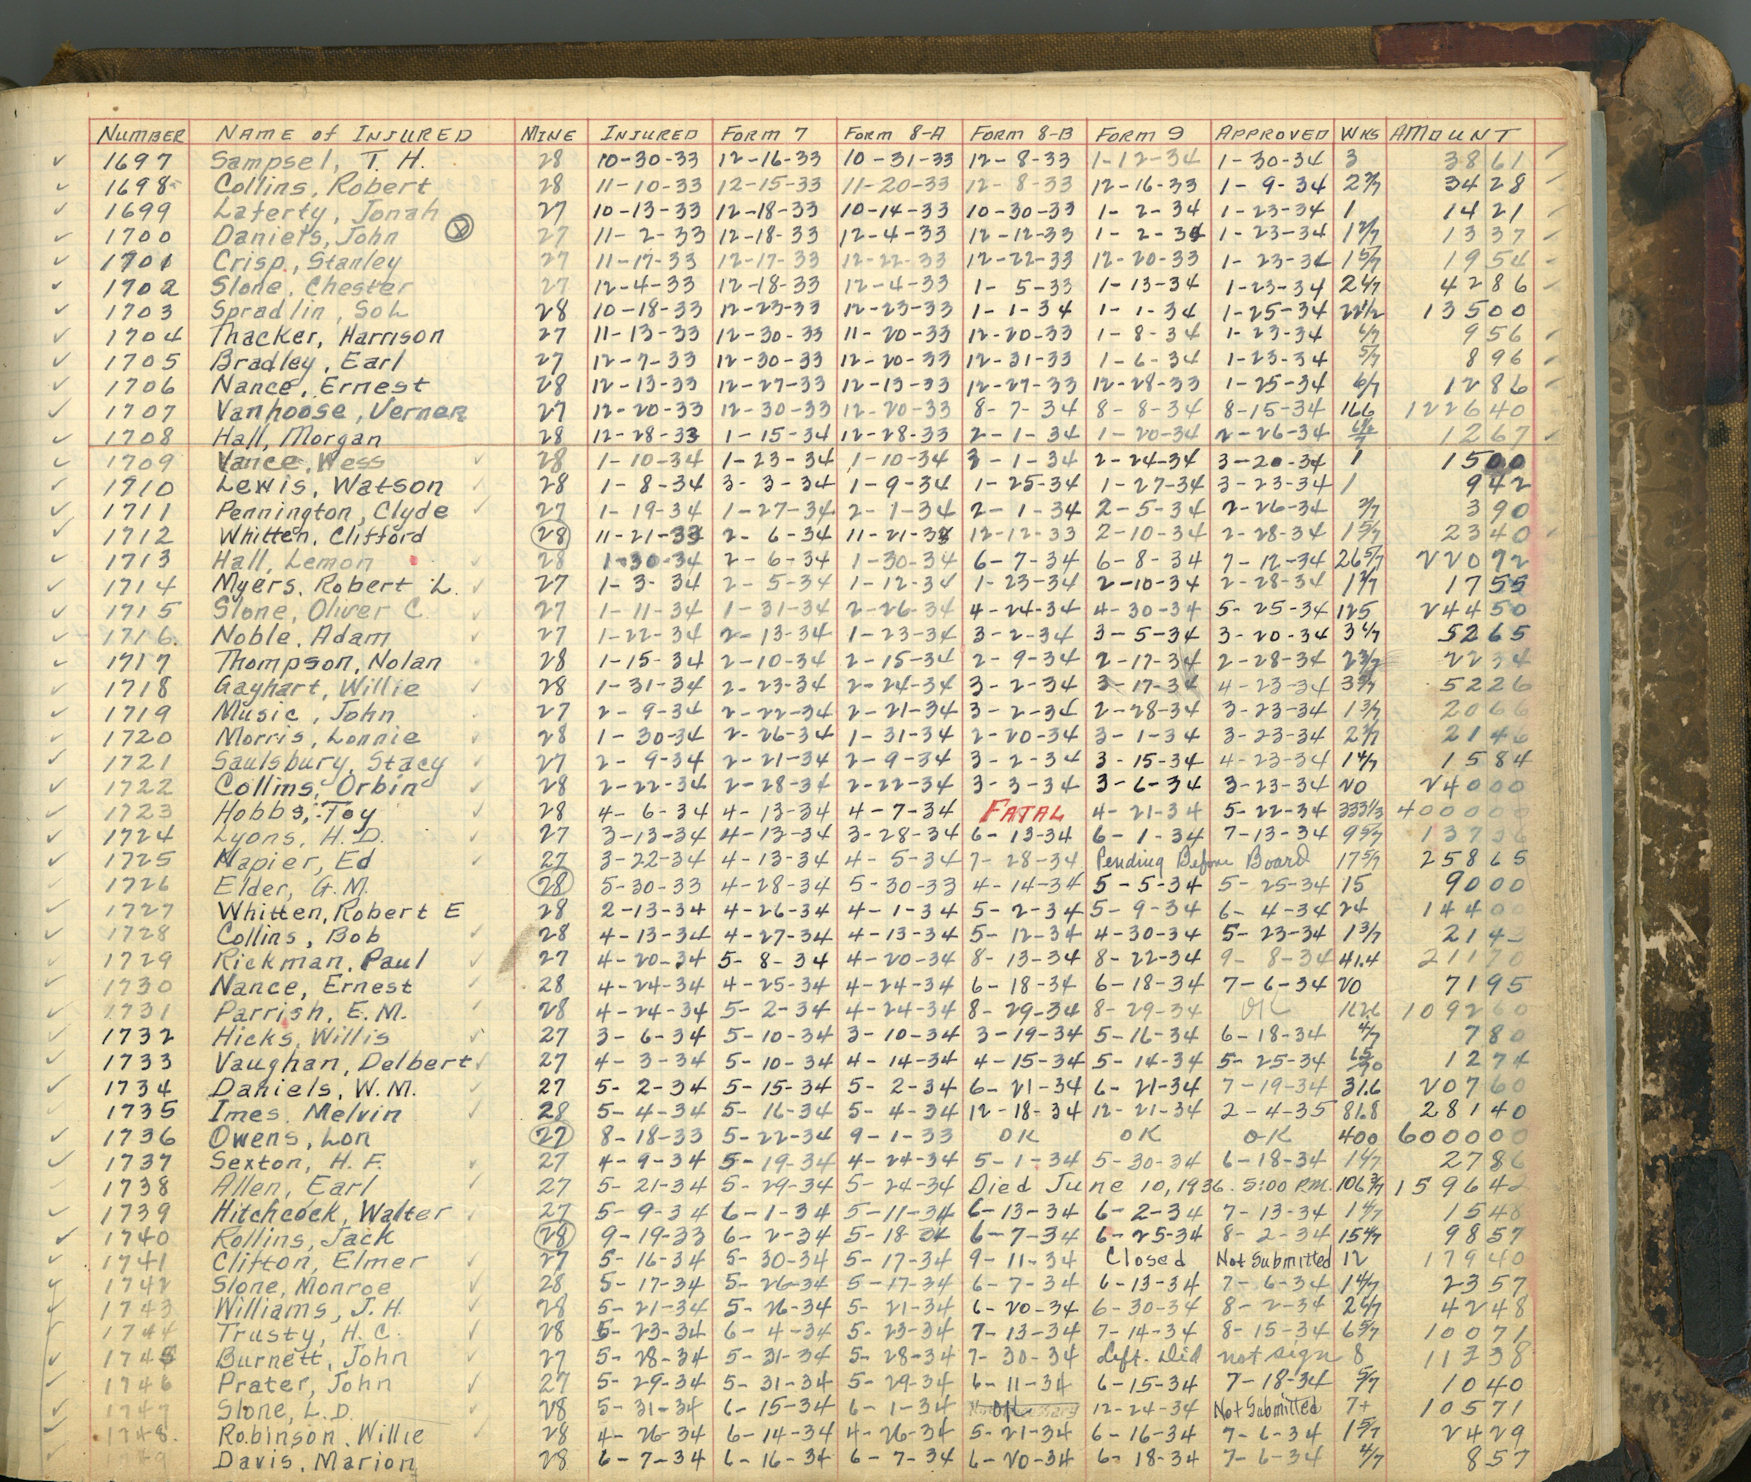 NUMBER NAME of INJURED MINE INJURED FORM 7 FORM 8-A FORM 8-B FORM 9 APPROVED WKS AMOUNT
1697 Sampsel, T. H. 28 10-30-33 12-16-33 10-31-33 12-8-33 1-12-34 1-30-34 3 3861
1698 Collins, Robert 28 11-10-33 12-15-33 11-20-33 12-8-33 12-16-33 1-9-34 3428
1699 Laferty, Jonah 27 10-13-33 12-18-33 10-14-33 10-30-33 1-2-34 1-23-34 1 1421
1700 Daniels, John 27 11-2-33 12-18-33 12-4-33 12-12-33 1-2-34 1-23-34 1337
1701 Crisp, Stanley 27 11-17-33 12-17-33 12-22-33 12-22-33 12-20-33 1-23-34 1 5/7 1954
1702 Slone, Chester 27 12-4-33 12-18-33 12-4-33 1-5-33 1-13-34 1-23-34 2 6/7 4286
1703 Spradlin, Sol 28 10-18-33 12-23-33 12-23-33 1-1-34 1-1-34 1-25-34 22 1/2 13500
1704 Thacker, Harrison 27 11-13-33 12-30-33 11-20-33 12-20-33 1-8-34 1-23-34 6/7 956
1705 Bradley, Earl 27 12-7-33 12-30-33 12-20-33 12-31-33 1-6-34 1-23-34 5/7 896
1706 Nance, Ernest 28 12-13-33 12-27-33 12-13-33 12-27-33 12-28-33 1-25-34 6/7 1286
1707 Vanhoose, Verner 27 12-20-33 12-30-33 12-20-33 8-7-34 8-8-34 8-15-34 166 122640
1708 Hall, Morgan 28 12-28-33 1-15-34 12-28-33 2-1-34 1-20-34 2-26-34 1267
1709 Vance, Wess 28 1-10-34 1-23-34 1-10-34 3-1-34 2-24-34 3-20-34 1 1500
1710 Lewis, Watson 28 1-8-34 3-3-34 1-9-34 1-25-34 1-27-34 3-23-34 1 942
1711 Pennington, Clyde 27 1-19-34 1-27-34 2-1-34 2-1-34 2-5-34 2-26-34 390
1712 Whitten, Clifford 28 11-21-33 2-6-34 11-21-33 12-12-33 2-10-34 2-28-34 1 5/7 2340
1713 Hall, Lemon 28 1-30-34 2-6-34 1-30-34 6-7-34 6-8-34 7-12-34 26 5/7 22092
1714 Myers, Robert L. 27 1-3-34 2-5-34 1-12-34 1-23-34 2-10-34 2-28-34 1755
1715 Slone, Oliver C. 27 1-11-34 1-31-34 2-26-34 4-24-34 4-30-34 5-25-34 125 24450
1716 Noble, Adam 27 1-22-34 2-13-34 1-23-34 3-2-34 3-5-34 3-20-34 3 6/7 5265
1717 Thompson, Nolan 28 1-15-34 2-10-34 2-15-34 2-9-34 2-17-34 2-28-34 2 3/7 2234
1718 Gayhart, Willie 28 1-31-34 2-23-34 2-24-34 3-2-34 3-17-34 4-23-34 5226
1719 Music, John 27 2-9-34 2-22-34 2-21-34 3-2-34 2-28-34 3-23-34 1 3/7 2066
1720 Morris, Lonnie 28 1-30-34 2-26-34 1-31-34 2-20-34 3-1-34 3-23-34 2146
1721 Saulsbury, Stacy 27 2-9-34 2-21-34 2-9-34 3-2-34 3-15-34 4-23-34 1 4/7 1584
1722 Collins, Orbin 28 2-22-34 2-28-34 2-22-34 3-3-34 3-6-34 3-23-34 20 24000
1723 Hobbs, Toy 28 4-6-34 4-13-34 4-7-34 FATAL 4-21-34 5-22-34 333 1/3 400000
1724 Lyons, H. D. 27 3-13-34 4-13-34 3-28-34 6-13-34 6-1-34 7-13-34 9 5/7 13736
1725 Napier, Ed 27 3-22-34 4-13-34 4-5-34 7-28-34 Pending Before Board 17 5/7 25865
1726 Elder, G. M. 28 5-30-33 4-28-34 5-30-33 4-14-34 5-5-34 5-25-34 15 9000
1727 Whitten, Robert E 28 2-13-34 4-26-34 4-1-34 5-2-34 5-9-34 6-4-34 24 14400
1728 Collins, Bob 28 4-13-34 4-27-34 4-13-34 5-12-34 4-30-34 5-23-34 1 3/7 2143
1729 Rickman, Paul 27 4-20-34 5-8-34 4-20-34 8-13-34 8-22-34 9-8-34 41.4 21170
1730 Nance, Ernest 28 4-24-34 4-25-34 4-24-34 6-18-34 6-18-34 7-6-34 20 7195
1731 Parrish, E. M. 28 4-24-34 5-2-34 4-24-34 8-29-34 8-29-34 OK 109260
1732 Hicks, Willis 27 3-6-34 5-10-34 3-10-34 3-19-34 5-16-34 6-18-34 4/7 780
1733 Vaughan, Delbert 27 4-3-34 5-10-34 4-14-34 4-15-34 5-14-34 5-25-34 1274
1734 Daniels, W. M. 27 5-2-34 5-15-34 5-2-34 6-21-34 6-21-34 7-19-34 31.6 20760
1735 Imes, Melvin 28 5-4-34 5-16-34 5-4-34 12-18-34 12-21-34 2-4-35 81.8 28140
1736 Owens, Lon 27 8-18-33 5-22-34 9-1-33 OK OK OK 400 600000
1737 Sexton, H. F. 27 4-9-34 5-19-34 4-24-34 5-1-34 5-30-34 6-18-34 1 6/7 2786
1738 Allen, Earl 27 5-21-34 5-29-34 5-24-34 Died June 10, 1936. 5:00 P.M. 106 3/7 159642
1739 Hitchcock, Walter 27 5-9-34 6-1-34 5-11-34 6-13-34 6-2-34 7-13-34 1548
1740 Rollins, Jack 28 9-19-33 6-2-34 5-18-34 6-7-34 6-25-34 8-2-34 15 4/7 9857
1741 Clifton, Elmer 27 5-16-34 5-30-34 5-17-34 9-11-34 Closed Not Submitted 12 17940
1742 Slone, Monroe 28 5-17-34 5-26-34 5-17-34 6-7-34 6-13-34 7-6-34 1 4/7 2357
1743 Williams, J. H. 28 5-21-34 5-26-34 5-21-34 6-20-34 6-30-34 8-2-34 2 6/7 4248
1744 Trusty, H. C. 28 5-23-34 6-4-34 5-23-34 7-13-34 7-14-34 8-15-34 6 5/7 10071
1745 Burnett, John 27 5-28-34 5-31-34 5-28-34 7-30-34 Left. Did not sign 8 11238
1746 Prater, John 27 5-29-34 5-31-34 5-29-34 6-11-34 6-15-34 7-18-34 5/7 1040
1747 Slone, L. D. 28 5-31-34 6-15-34 6-1-34 OK 12-24-34 Not Submitted 7+ 10571
1748 Robinson, Willie 28 4-26-34 6-14-34 4-26-34 5-21-34 6-16-34 7-6-34 1 5/7 2429
Davis, Marion 28 6-7-34 6-16-34 6-7-34 6-20-34 6-18-34 7-6-34 4/7 857